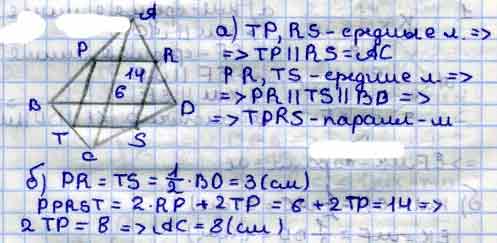 A
P
R
14
6
B
D
T
S
C
а) TP, RS - средные л. =>
=> TP || RS = AC
PR, TS - средние л. =>
=> PR || TS || BB =>
=> TPRS - паралл-м
б) PR = TS = 1/2 · BD = 3 (см)
PPRST = 2 · RP + 2TP = 6 + 2TP = 14 =>
2TP = 8 => AC = 8 (см)